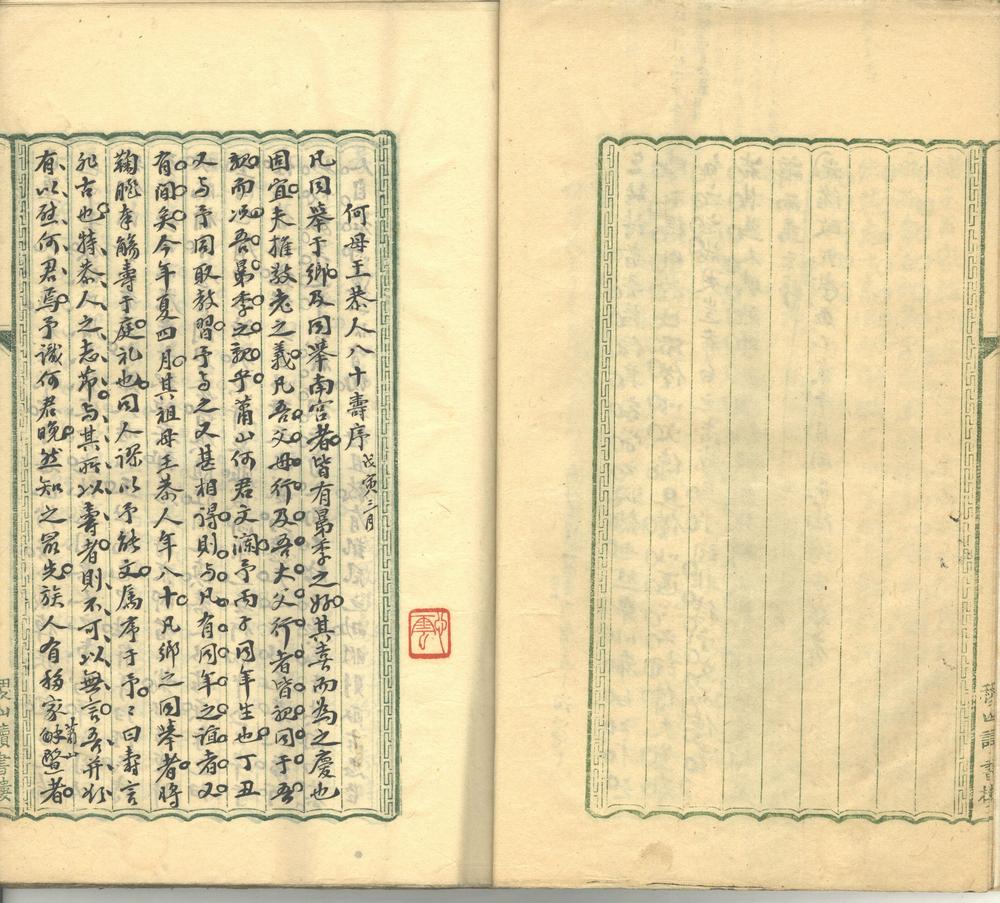 何母王恭人八十壽序 戊寅三月
凡同舉于鄉及同舉南宮者皆有昴季之好其喜而為之慶也
固宜夫推敬老之義凡吾父母行及吾大父行者皆視同于吾
親而况吾昴季之親乎蕭山何君文瀾予丙子同年生也丁丑
又與予同取教習予與之又甚相得則與凡有同年之誼者又
有間矣今年夏四月其祖母王恭人年八十凡鄉之同舉者時
鞠跽奉觴壽于庭礼也同人謬以予能文屬序于予予曰壽言
非古也特恭人之志節與其所以壽者則不可以無言吾并於
有以慰何君焉予識何君晚然知之最先族人有移家蕭山解醫者
讀書樓
山讀書樓